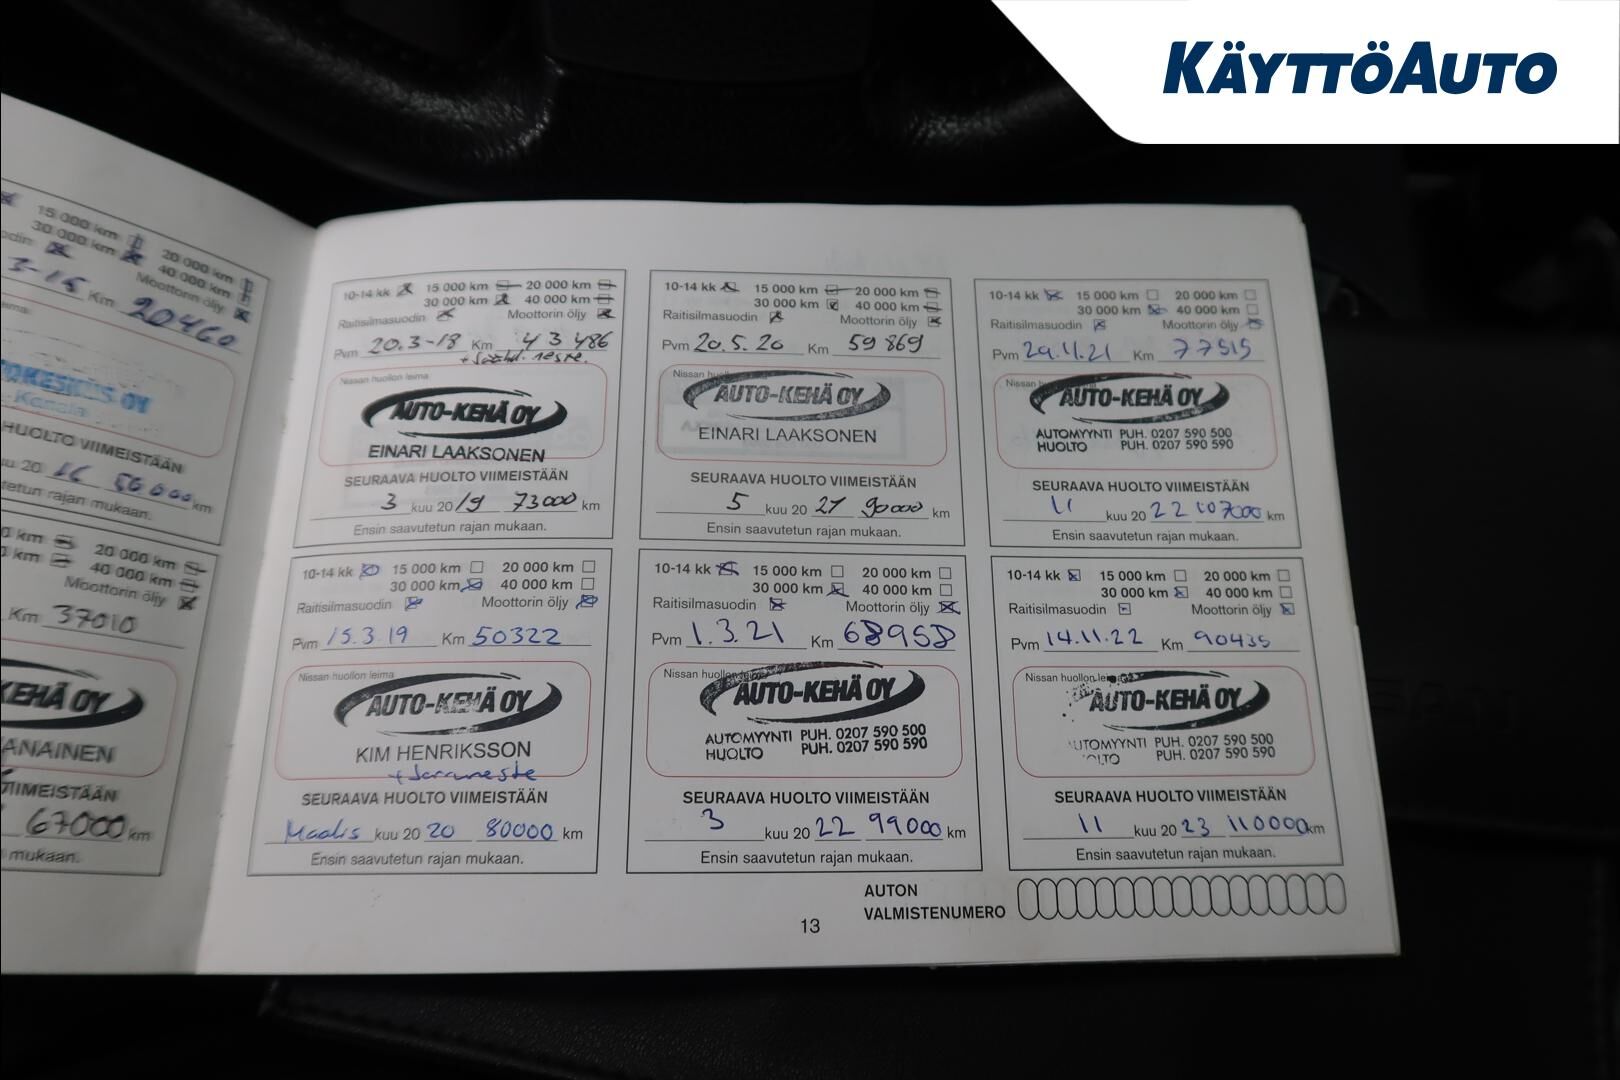 KÄYTTÖAUTO
15 000 km 20 000 km
30 000 km 40 000 km
Moottorin öljy
3-15 Km 20460
OY
HUOLTO VIIMEISTÄÄN
kuu 20 16 50 000 km
rajan mukaan.
20 000 km
40 000 km
Moottorin öljy
Km 37010
KEHÄ OY
VIIMEISTÄÄN
67000 km
mukaan.
10-14 kk 15 000 km 20 000 km
30 000 km 40 000 km
Raitisilmasuodin Moottorin öljy
Pvm 20.3-18 Km 43 486
Nissan huollon leima
AUTO-KEHÄ OY
EINARI LAAKSONEN
SEURAAVA HUOLTO VIIMEISTÄÄN
3 kuu 20 19 73000 km
Ensin saavutetun rajan mukaan.
10-14 kk 15 000 km 20 000 km
30 000 km 40 000 km
Raitisilmasuodin Moottorin öljy
Pvm 20.5.20 Km 59 869
Nissan
AUTO-KEHÄ OY
EINARI LAAKSONEN
SEURAAVA HUOLTO VIIMEISTÄÄN
5 kuu 20 21 90000 km
Ensin saavutetun rajan mukaan.
10-14 kk 15 000 km 20 000 km
30 000 km 40 000 km
Raitisilmasuodin Moottorin öljy
Pvm 29.11.21 Km 77515
Nissan
AUTO-KEHÄ OY
AUTOMYYNTI PUH. 0207 590 500
HUOLTO PUH. 0207 590 590
SEURAAVA HUOLTO VIIMEISTÄÄN
11 kuu 20 22 107000 km
Ensin saavutetun rajan mukaan.
10-14 kk 15 000 km 20 000 km
30 000 km 40 000 km
Raitisilmasuodin Moottorin öljy
Pvm 15.3.19 Km 50322
Nissan huollon leima
AUTO-KEHÄ OY
KIM HENRIKSSON
+ Jarruneste
SEURAAVA HUOLTO VIIMEISTÄÄN
Maalis kuu 20 20 80000 km
Ensin saavutetun rajan mukaan.
10-14 kk 15 000 km 20 000 km
30 000 km 40 000 km
Raitisilmasuodin Moottorin öljy
Pvm 1.3.21 Km 68958
Nissan huollon leima
AUTO-KEHÄ OY
AUTOMYYNTI PUH. 0207 590 500
HUOLTO PUH. 0207 590 590
SEURAAVA HUOLTO VIIMEISTÄÄN
3 kuu 20 22 99000 km
Ensin saavutetun rajan mukaan.
10-14 kk 15 000 km 20 000 km
30 000 km 40 000 km
Raitisilmasuodin Moottorin öljy
Pvm 14.11.22 Km 90435
Nissan huollon
AUTO-KEHÄ OY
UTOMYYNTI PUH. 0207 590 500
LTO PUH. 0207 590 590
SEURAAVA HUOLTO VIIMEISTÄÄN
11 kuu 20 23 110000 km
Ensin saavutetun rajan mukaan.
AUTON
VALMISTENUMERO
13